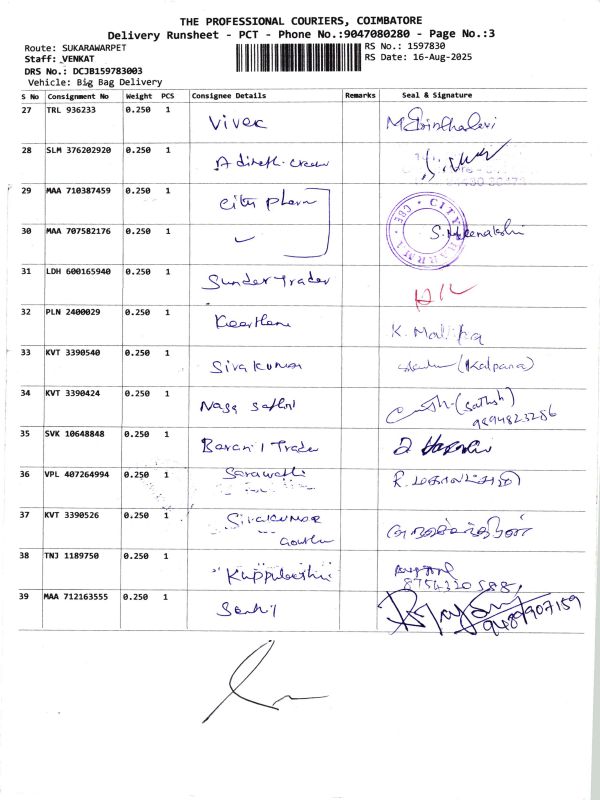 THE PROFESSIONAL COURIERS, COIMBATORE
Delivery Runsheet - PCT - Phone No.:9047080280 - Page No.:3
Route: SUKARAWARPET
RS No.: 1597830
Staff: VENKAT
RS Date: 16-Aug-2025
DRS No.: DCJB159783003
Vehicle: Big Bag Delivery
S No Consignment No Weight PCS Consignee Details Remarks Seal & Signature
27 TRL 936233 0.250 1 Vivek
28 SLM 376202920 0.250 1
29 MAA 710387459 0.250 1 City Pharm
CITY
CBE
30 MAA 707582176 0.250 1 S. Meenakshi
31 LDH 600165940 0.250 1 Sunder Trader
32 PLN 2400029 0.250 1 Keerthana K. Malika
33 KVT 3390540 0.250 1 Sivakumar (Kalpana)
34 KVT 3390424 0.250 1 Naga (Sathish)
9894823286
35 SVK 10648848 0.250 1 Barani Trader
36 VPL 407264994 0.250 1 Sarawathi R.
37 KVT 3390526 0.250 1 Sivakumar
38 TNJ 1189750 0.250 1
8754320588
39 MAA 712163555 0.250 1 Senthil
9489907159